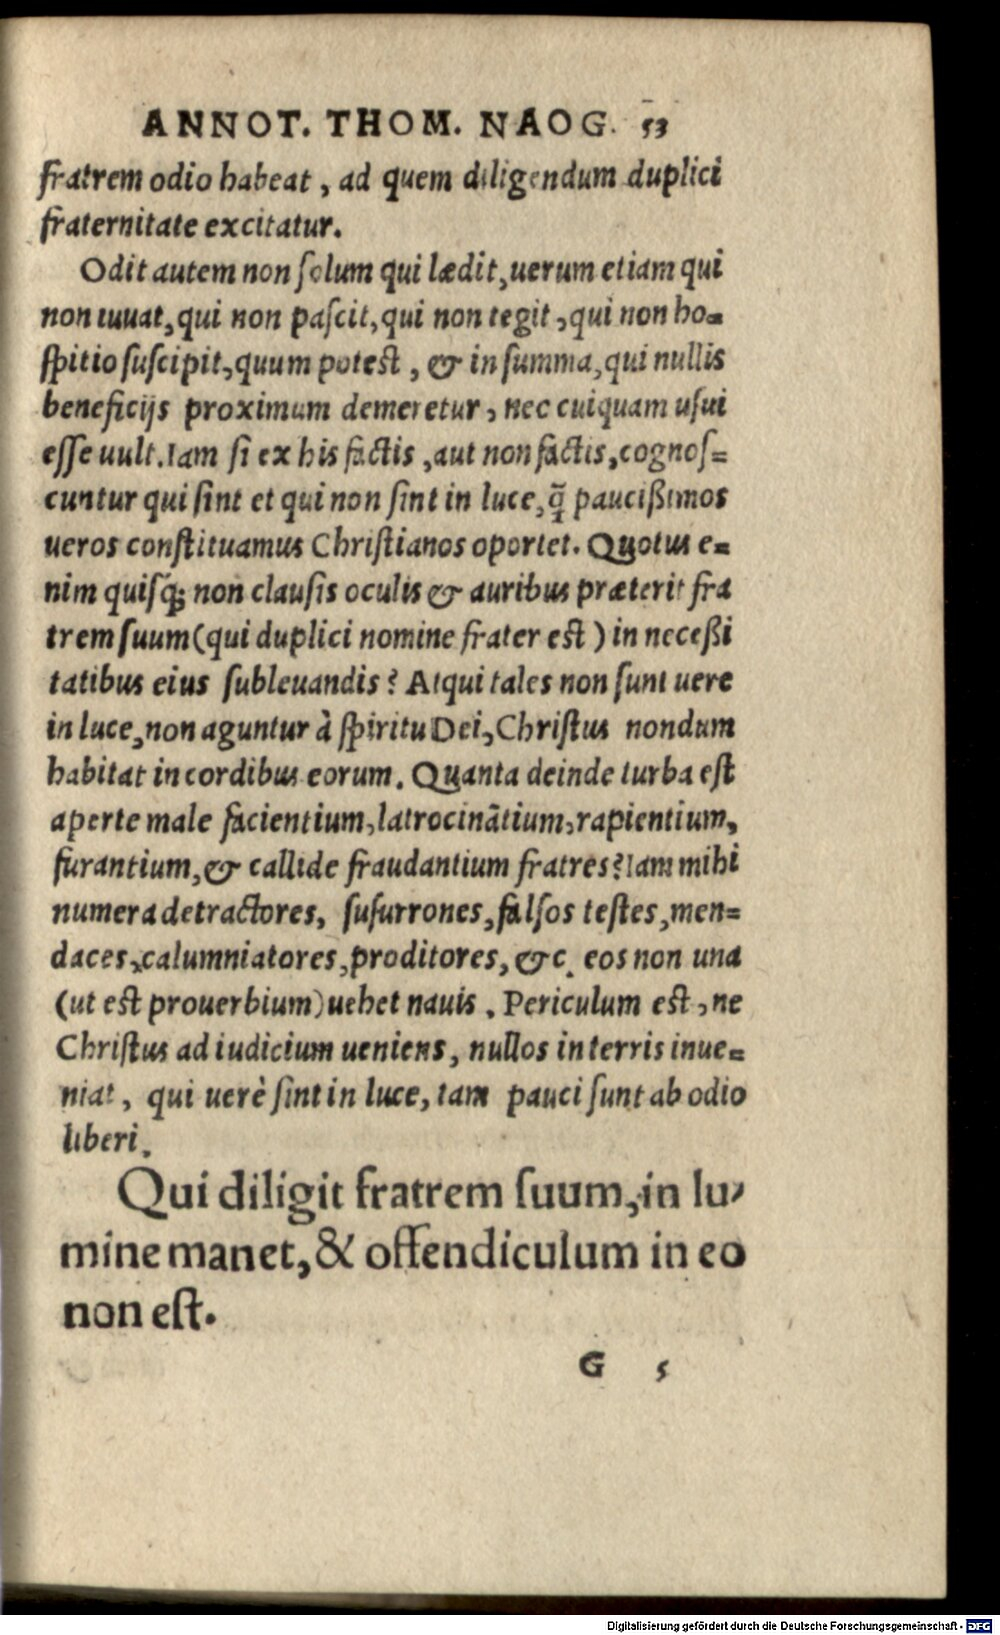 ANNOT. THOM. NAOG. 53
fratrem odio habeat, ad quem diligendum duplici
fraternitate excitatur.
Odit autem non solum qui lædit, uerum etiam qui
non iuuat, qui non pascit, qui non tegit, qui non ho=
spitio suscipit, quum potest, & in summa, qui nullis
beneficijs proximum demeretur, nec cuiquam usui
esse uult. Iam si ex his factis, aut non factis, cognos=
cuntur qui sint et qui non sint in luce, q̄ paucißimos
ueros constituamus Christianos oportet. Quotus e=
nim quisq; non clausis oculis & auribus præterit fra
trem suum (qui duplici nomine frater est) in neceßi
tatibus eius subleuandis? Atqui tales non sunt uere
in luce, non aguntur à spiritu Dei, Christus nondum
habitat in cordibus eorum. Quanta deinde turba est
aperte male facientium, latrocinātium, rapientium,
furantium, & callide fraudantium fratres? Iam mihi
numera detractores, susurrones, falsos testes, men=
daces, calumniatores, proditores, &c. eos non una
(ut est prouerbium) uehet nauis. Periculum est, ne
Christus ad iudicium ueniens, nullos in terris inue=
niat, qui uerè sint in luce, tam pauci sunt ab odio
liberi.
Qui diligit fratrem suum, in lu-
mine manet, & offendiculum in eo
non est.
G 5
Digitalisierung gefördert durch die Deutsche Forschungsgemeinschaft - DFG